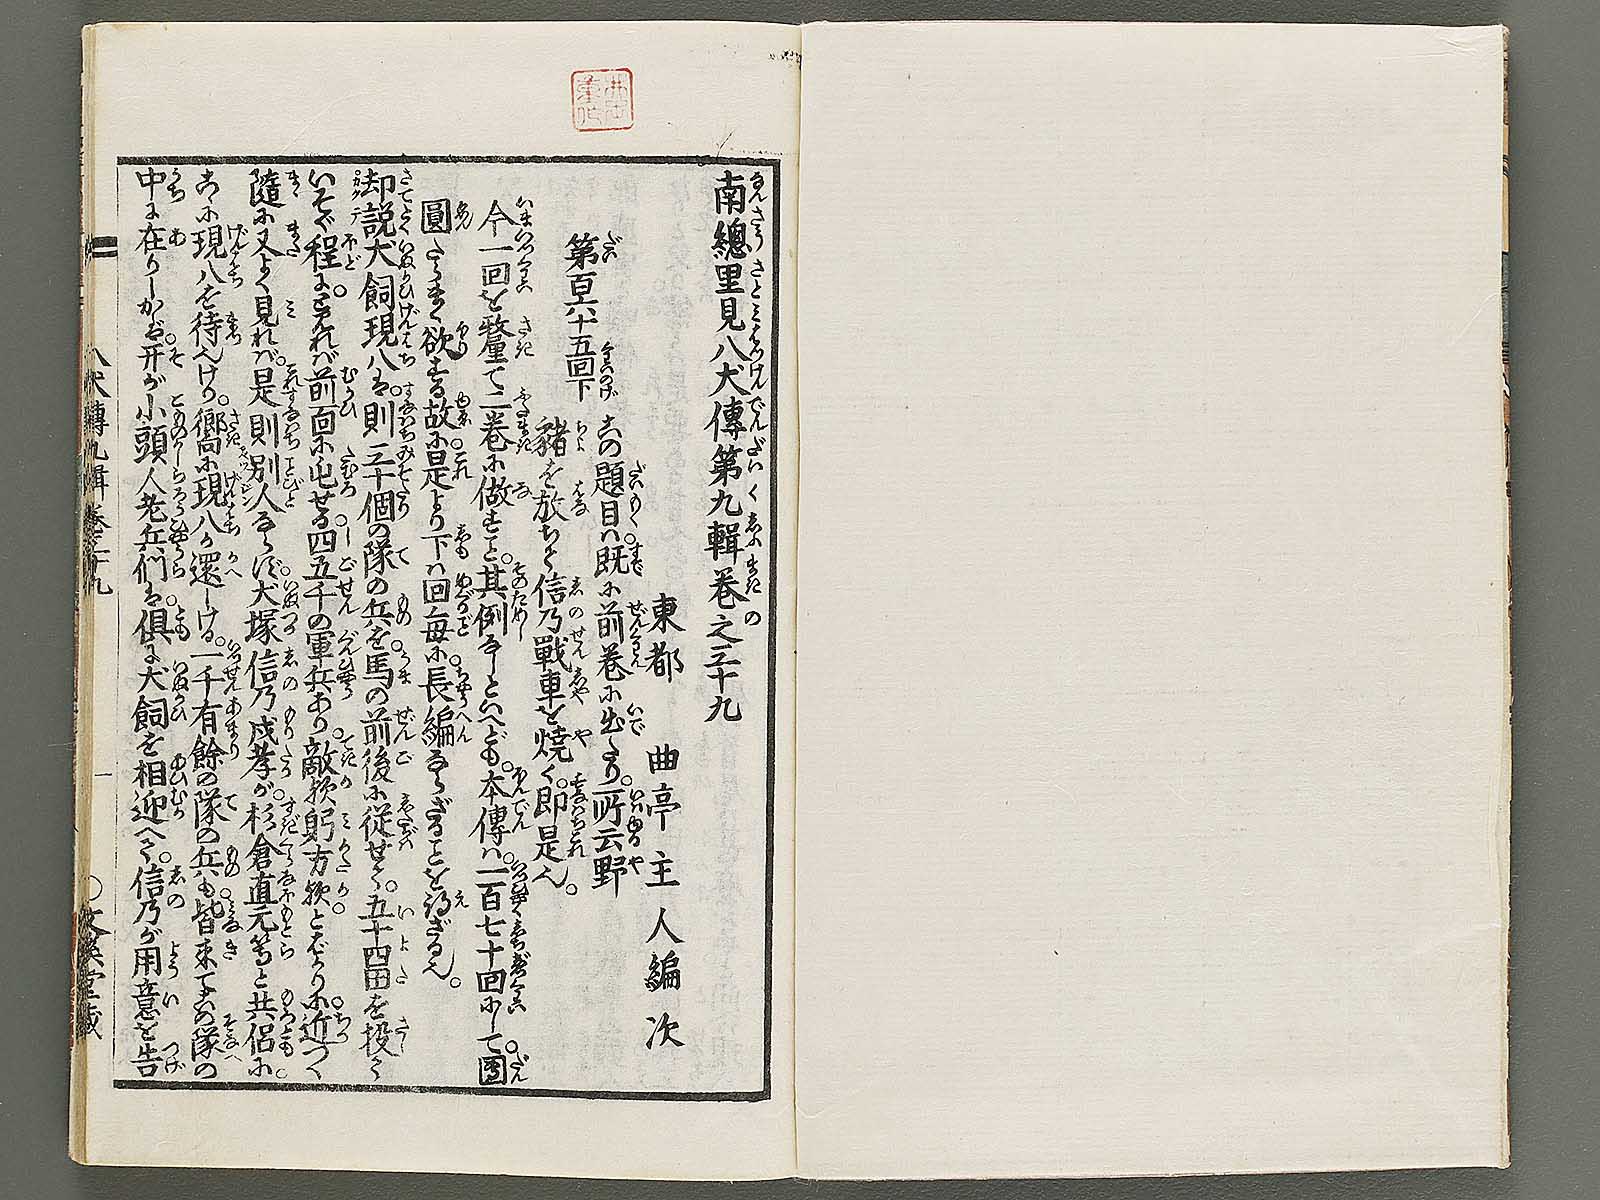 南總里見八犬傳第九輯巻之三十九
東都 曲亭主人編次
第百六十五回下 この題目ハ既に前巻に出たり。所云野
猪を放ちて信乃戰車を焼く。即是也。
今一回を釐て二巻に做すこと。其例なしといへども。本傳ハ。一百七十回にして團
圓たらまく欲する故に是より下ハ回毎に長編ならざることを得ざる也。
却説犬飼現八ハ。則三十個の隊の兵を馬の前後に從せて。五十四田を投て
いそぐ程に見れバ前面に屯せる四五千の軍兵あり。敵歟躬方歟とばかりに近づく
隨に又よく見れバ。是則別人ならず犬塚信乃戍孝が杉倉直元等と共侶に
こゝに現八を待へけり。嚮に現八が還しける。一千有餘の隊の兵も皆来てこの隊の
中に在りしかバ。开が小頭人老兵們ハ。倶に犬飼を相迎へて。信乃が用意を告
八犬傳九輯 巻三十九 一 ○文溪堂藏